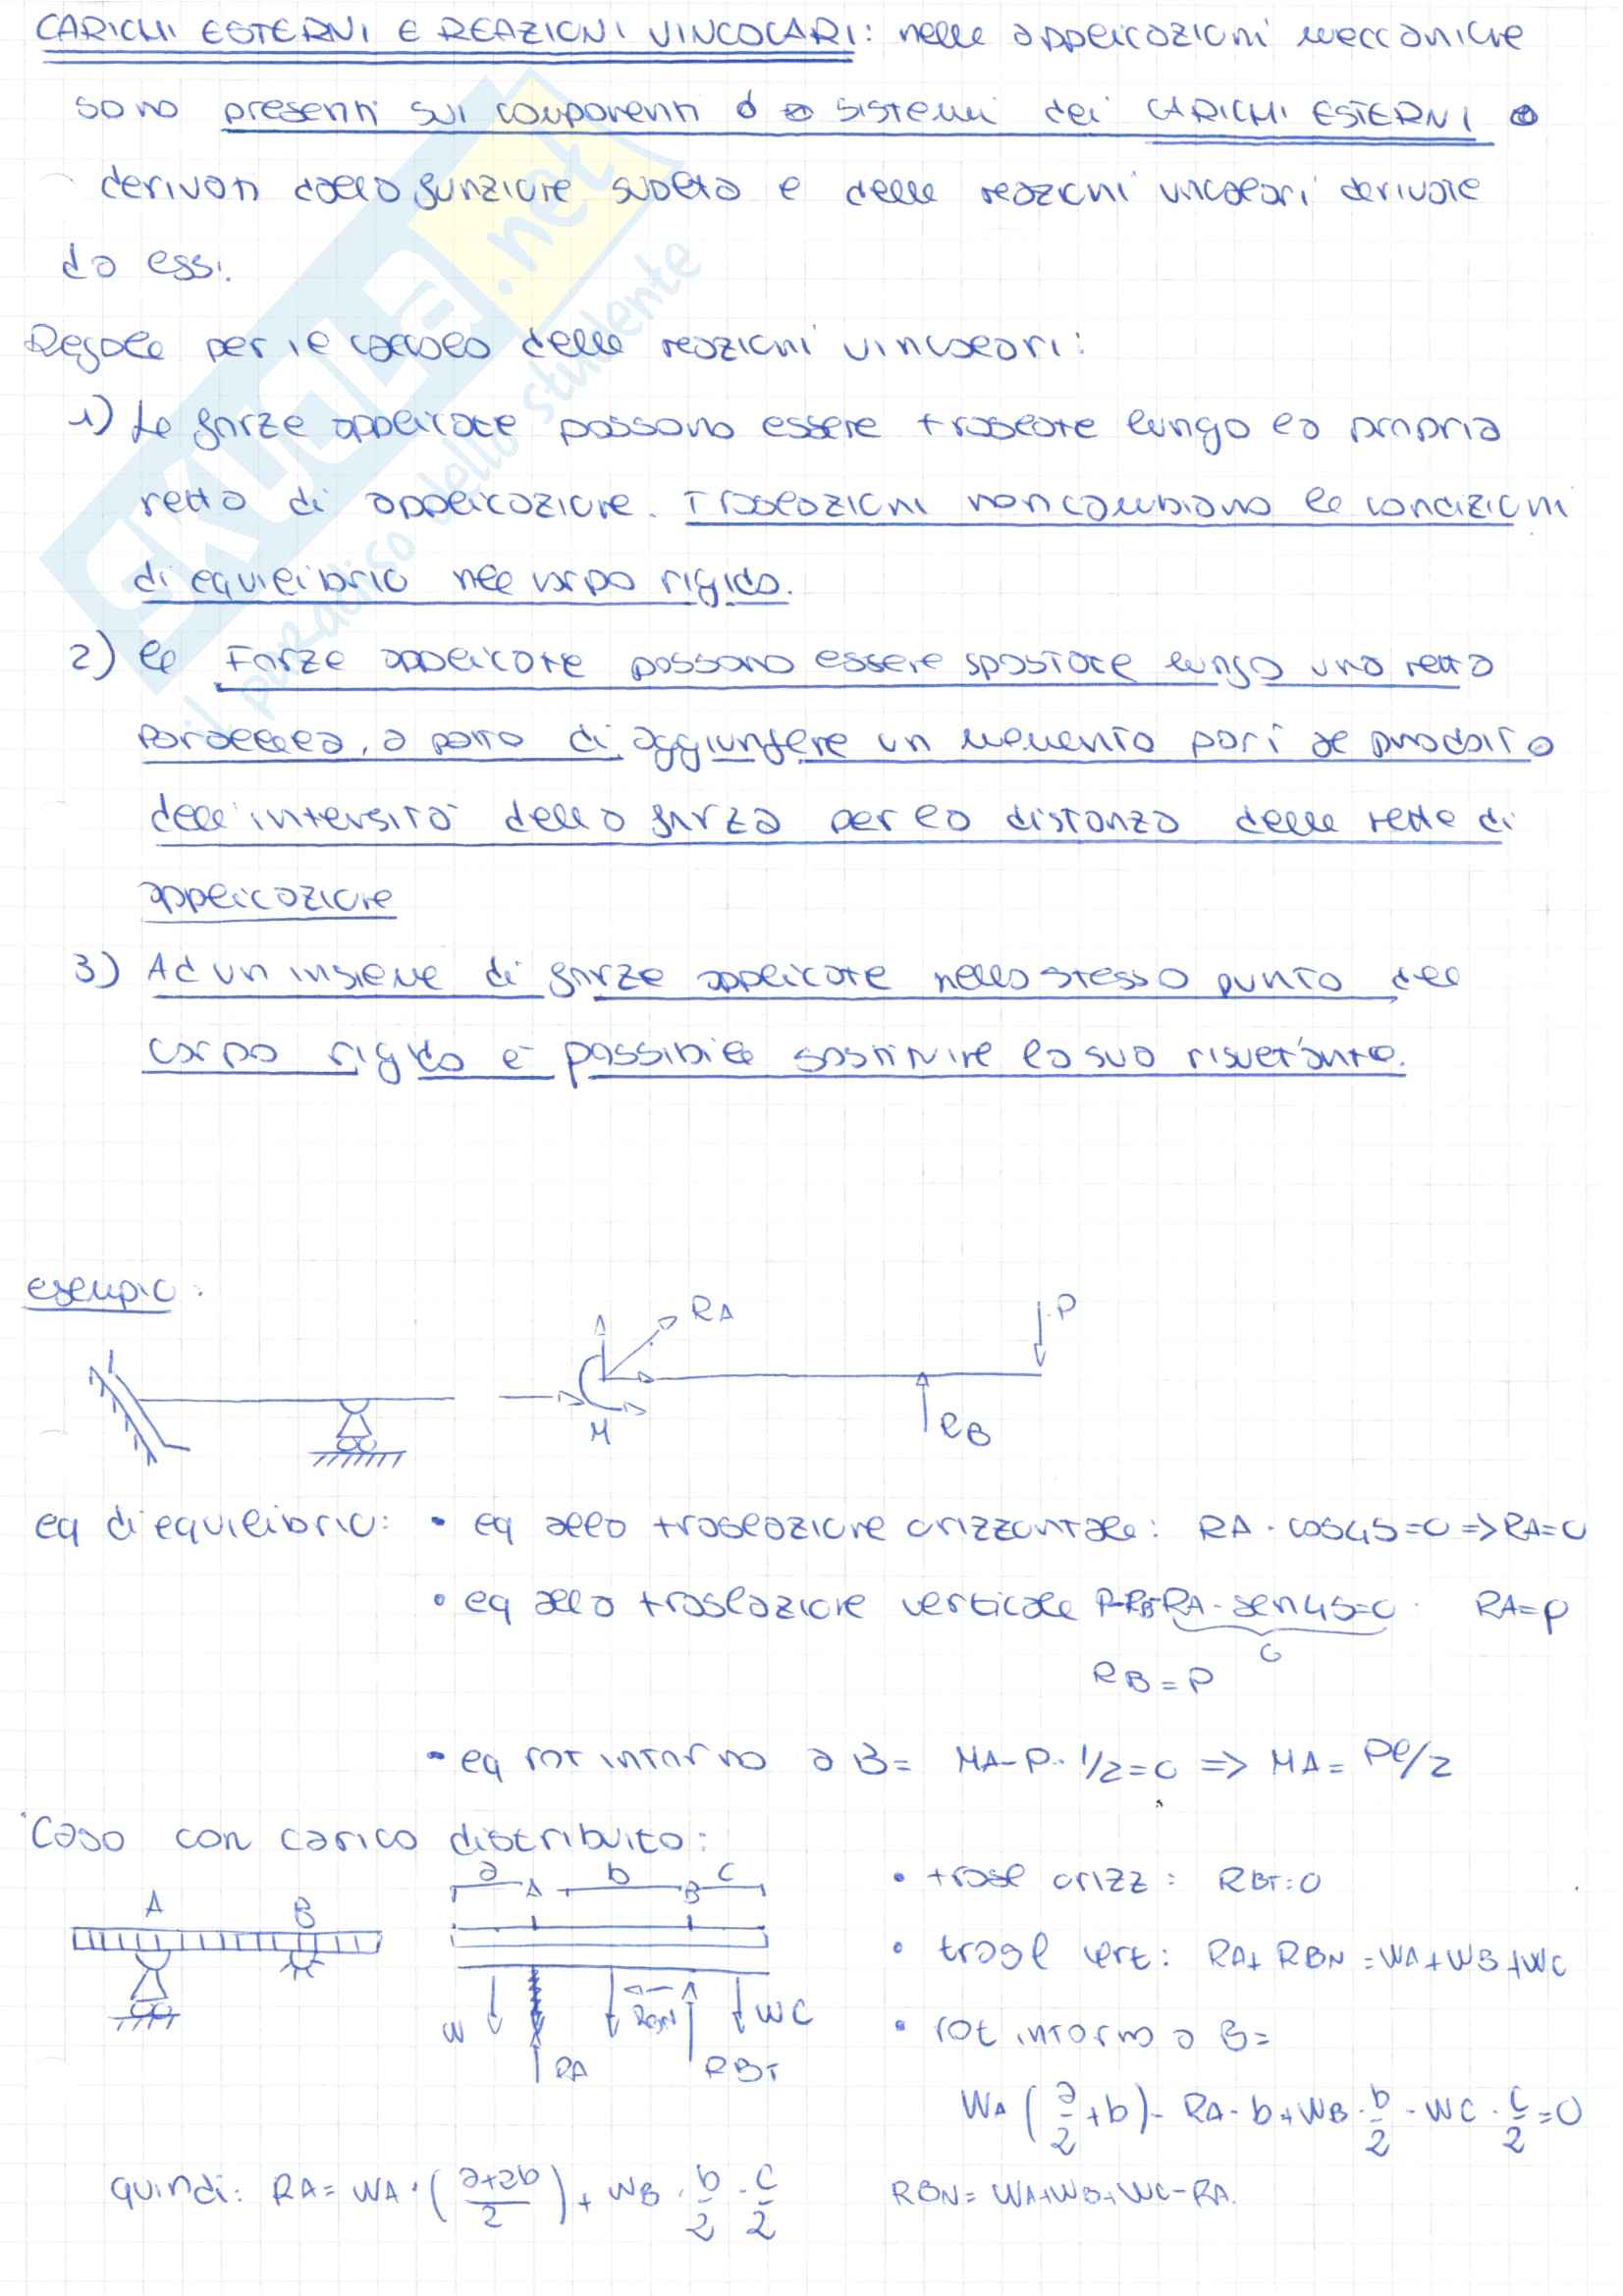 CARICHI ESTERNI E REAZIONI VINCOLARI: nelle applicazioni meccaniche
sono presenti sui componenti o sistemi dei CARICHI ESTERNI
derivati dalla funzione svolta e delle reazioni vincolari derivate
da essi.
Regole per il calcolo delle reazioni vincolari:
1) Le forze applicate possono essere traslate lungo la propria
retta di applicazione. Traslazioni non cambiano le condizioni
di equilibrio nel corpo rigido.
2) le Forze applicate possono essere spostate lungo una retta
parallela, a patto di aggiungere un momento pari al prodotto
dell'intensità della forza per la distanza delle rette di
applicazione
3) Ad un insieme di forze applicate nello stesso punto del
corpo rigido e' possibile sostituire la sua risultante.
esempio:
RA
P
M
RB
eq di equilibrio: • eq alla traslazione orizzontale: RA · cos45=0 => RA=0
• eq alla traslazione verticale P-RB-RA · sen45=0 RA=P
0
RB=P
• eq rot intorno a B= MA-P · 1/2=0 => MA= Pl/2
Caso con carico distribuito:
a A b B c
A B
• trasl orizz: RBT=0
• trasl vert: RA+RBN=WA+WB+WC
W RBN WC
RA RBT
• rot intorno a B=
WA (a/2+b)- RA·b+WB·b/2-WC·c/2=0
quindi: RA= WA·((a+2b)/2)+WB·b/2·c/2 RBN= WA+WB+WC-RA.
SKUOLA.net
il paradiso dello studente